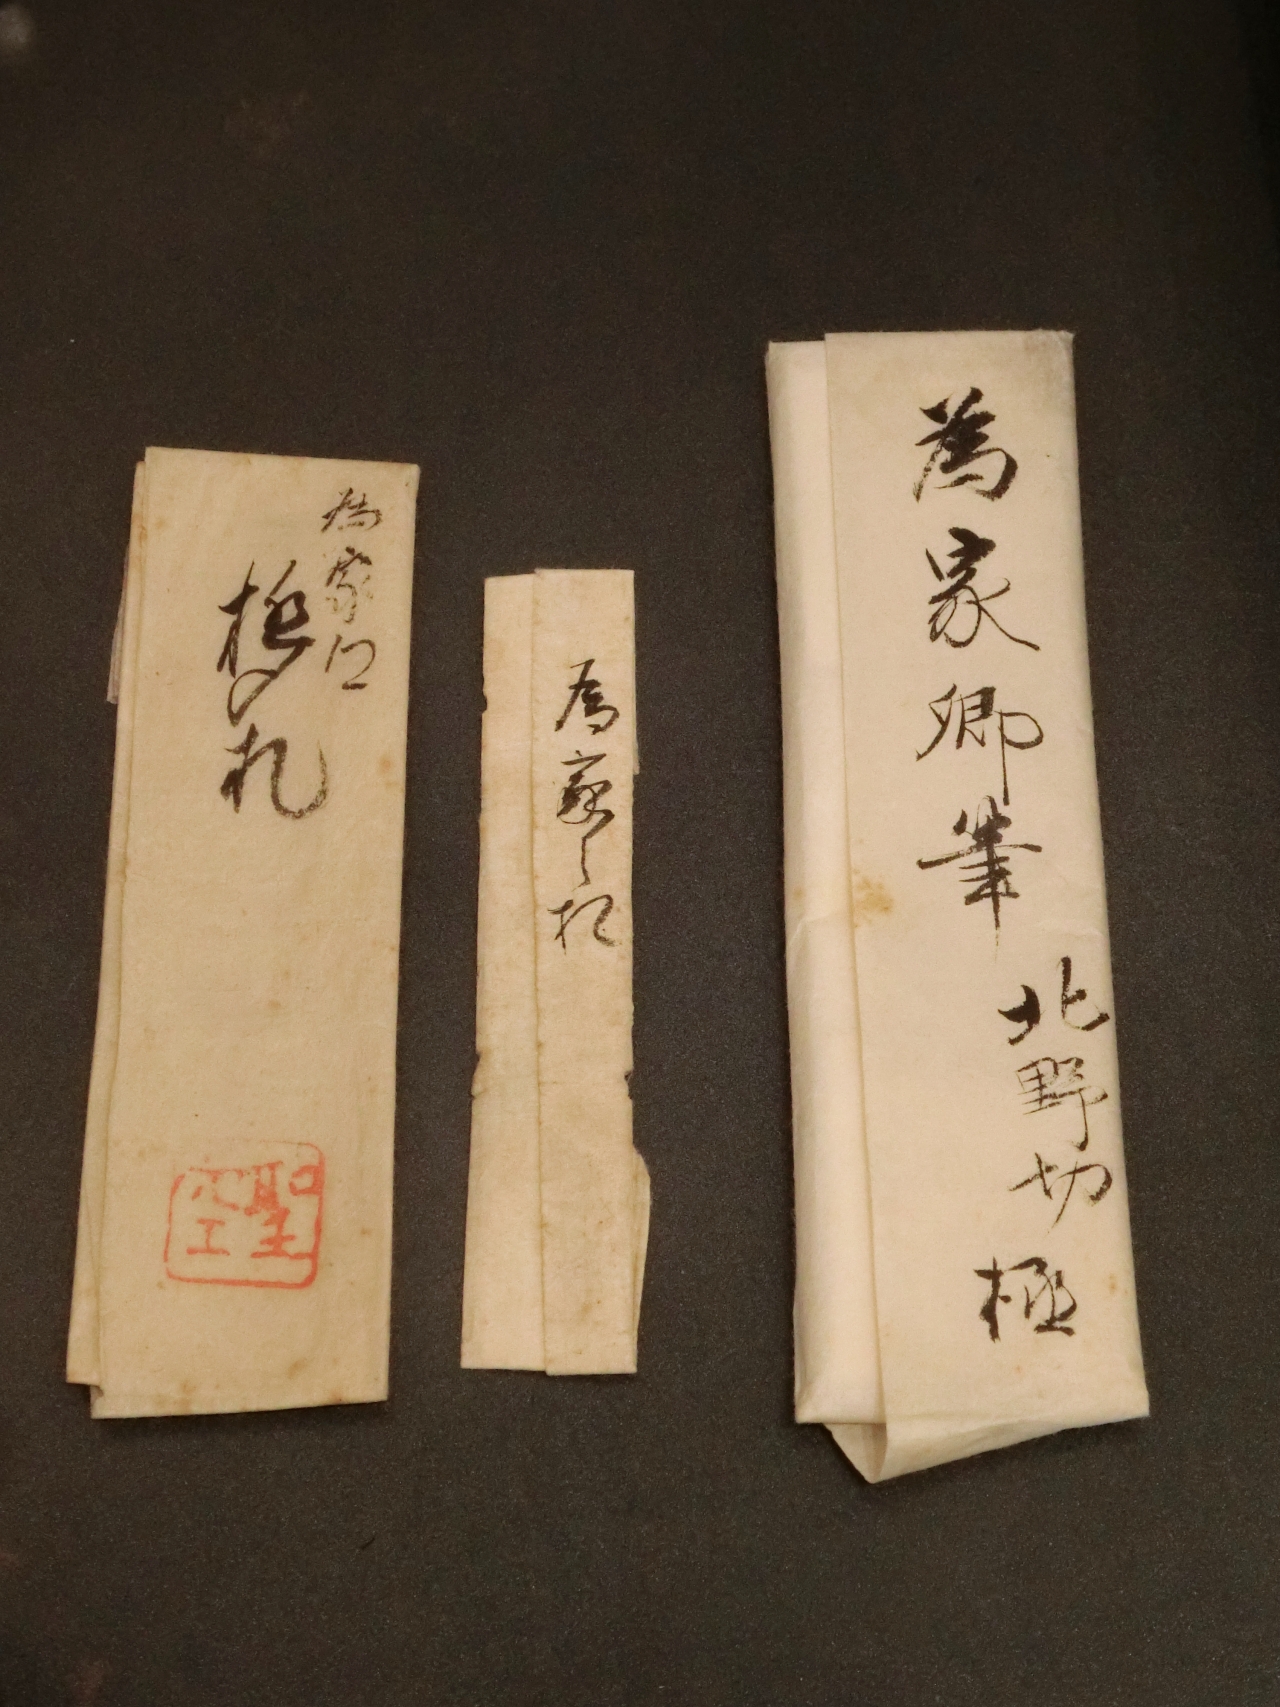 為家卿筆
北野切
極
為家之札
為家卿
極札
聖空